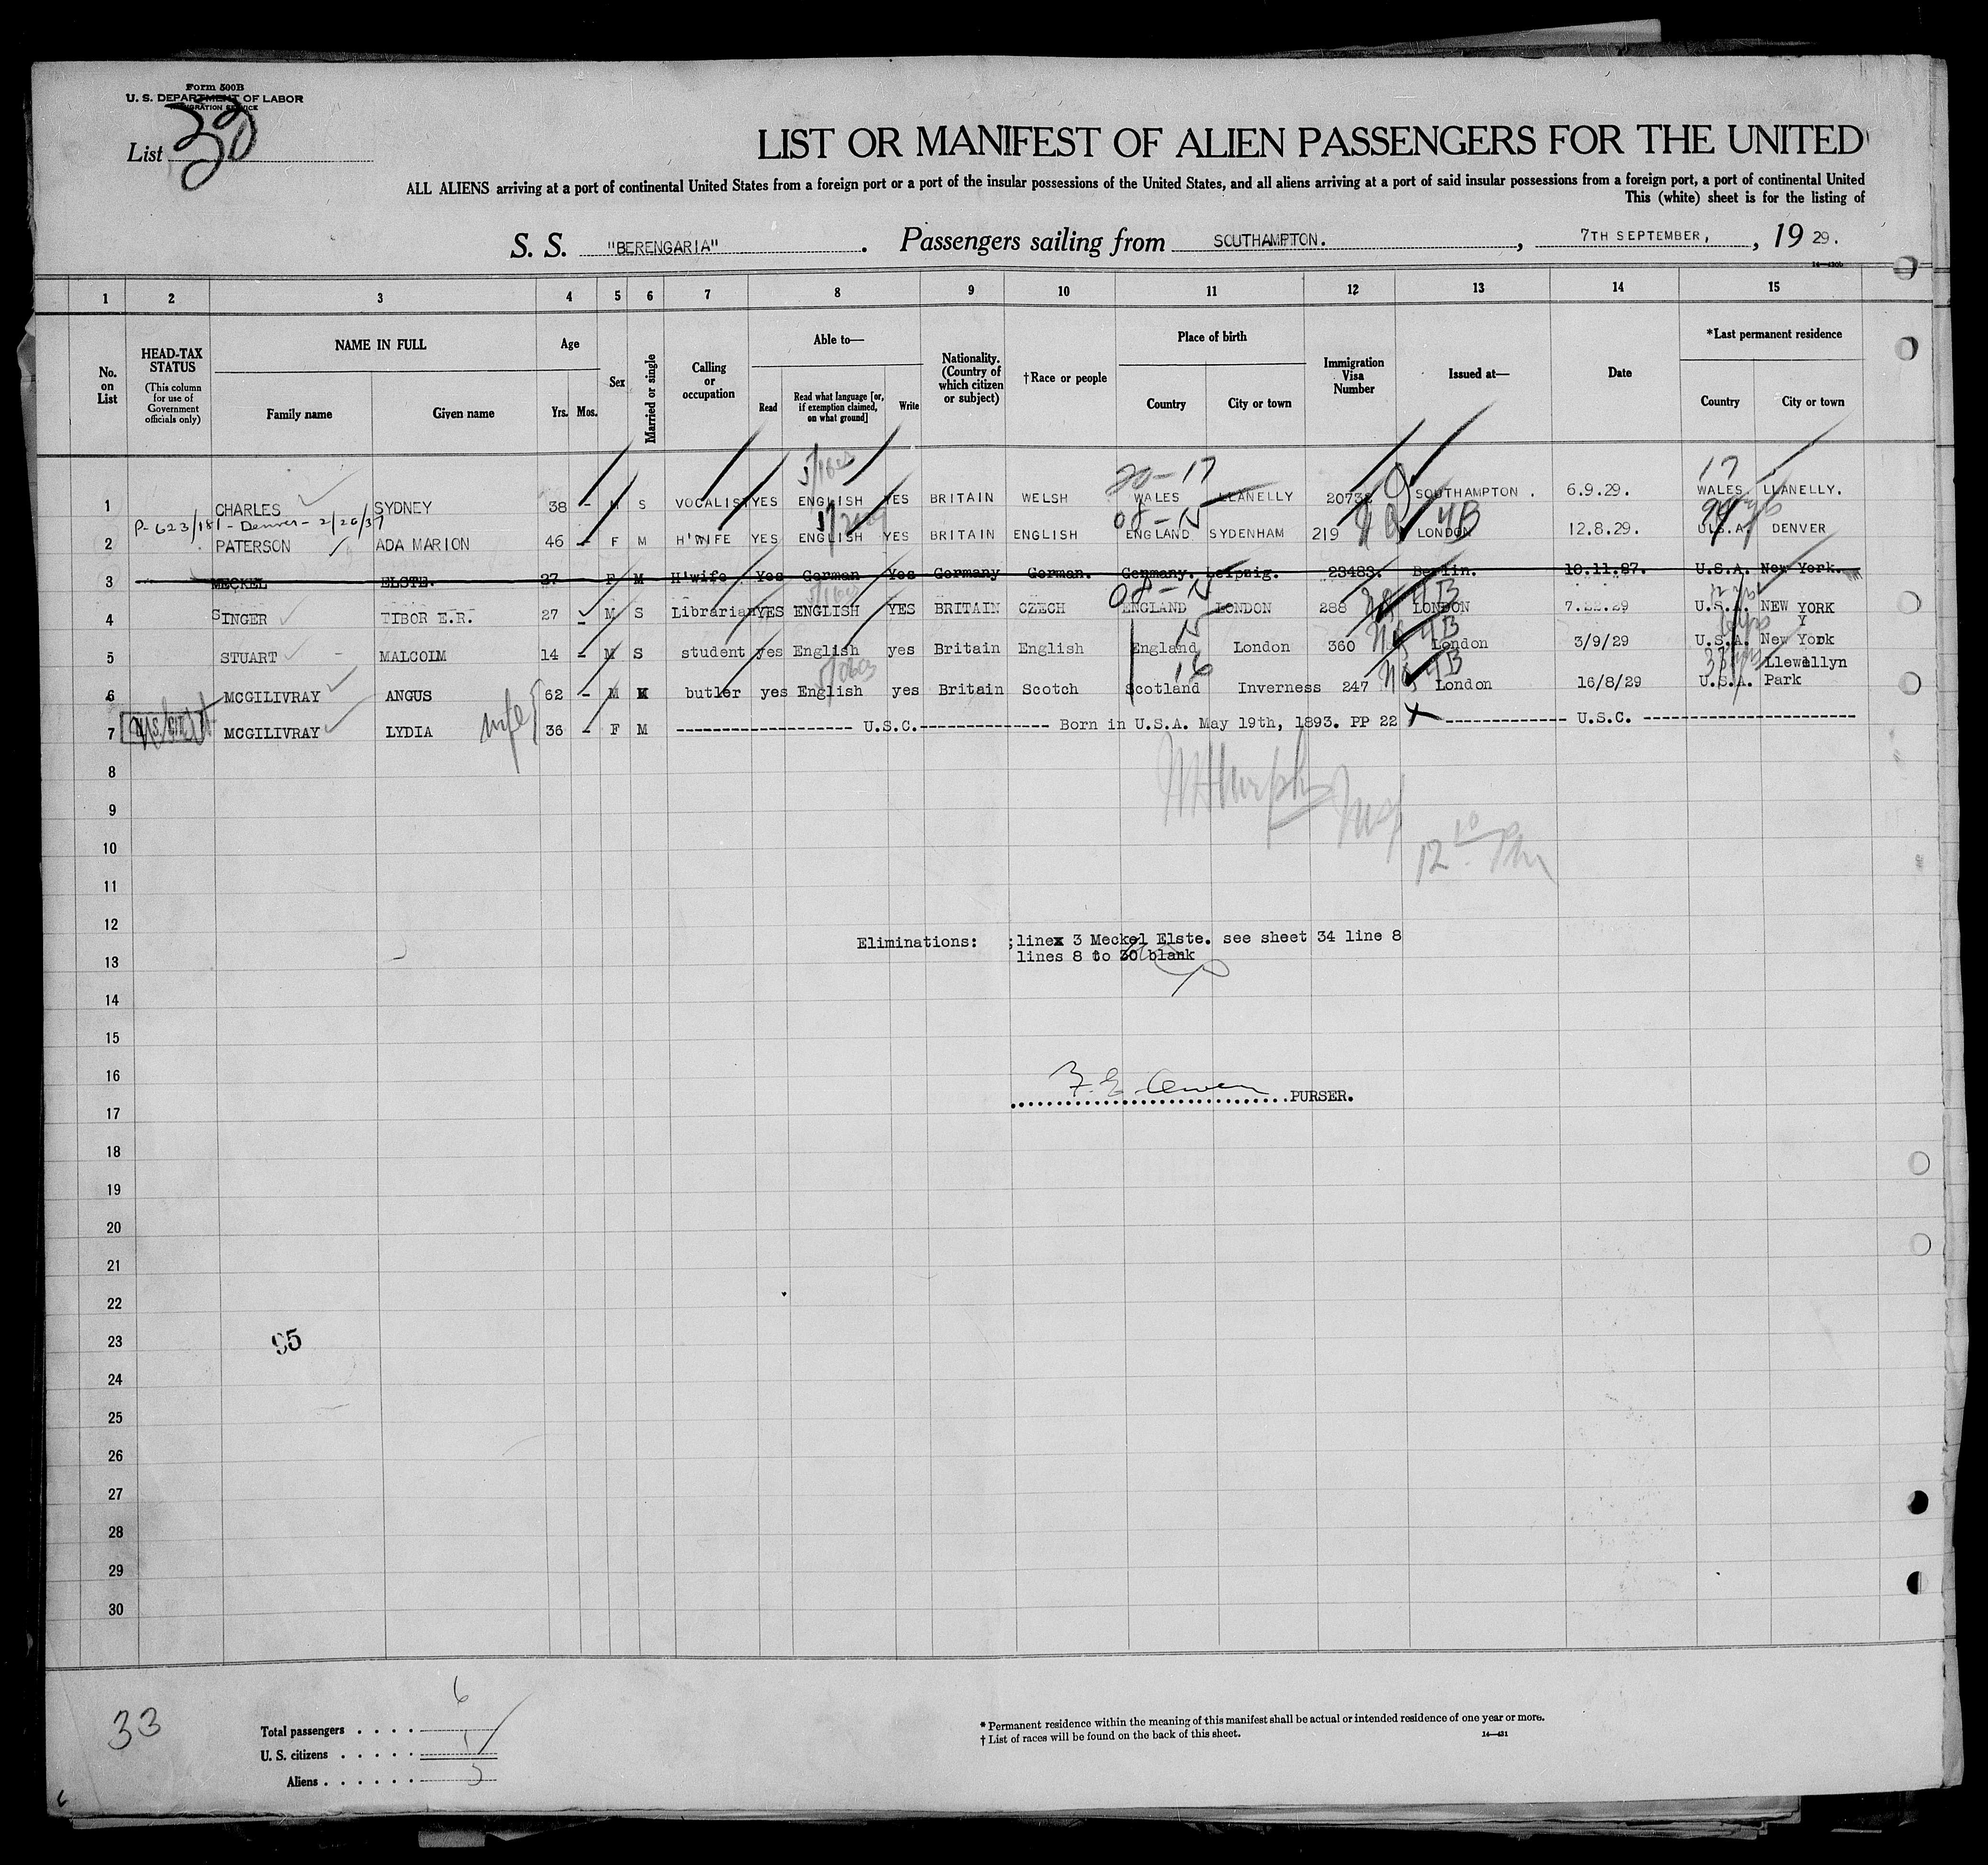 Form 500B
U. S. DEPARTMENT OF LABOR
IMMIGRATION SERVICE
List 30
LIST OR MANIFEST OF ALIEN PASSENGERS FOR THE UNITED
ALL ALIENS arriving at a port of continental United States from a foreign port or a port of the insular possessions of the United States, and all aliens arriving at a port of said insular possessions from a foreign port, a port of continental United
This (white) sheet is for the listing of
S. S. "BERENGARIA" . Passengers sailing from SOUTHAMPTON. , 7TH SEPTEMBER, , 19 29.
1 2 3 4 5 6 7 8 9 10 11 12 13 14 15
No. on List
HEAD-TAX STATUS (This column for use of Government officials only)
NAME IN FULL
Family name Given name
Age
Yrs. Mos.
Sex
Married or single
Calling or occupation
Able to—
Read Read what language [or, if exemption claimed, on what ground] Write
Nationality. (Country of which citizen or subject)
†Race or people
Place of birth
Country City or town
Immigration Visa Number
Issued at—
Date
*Last permanent residence
Country City or town
20-17 17
1 CHARLES SYDNEY 38 - M S VOCALIST YES ENGLISH YES BRITAIN WELSH WALES LLANELLY 20732 SOUTHAMPTON . 6.9.29. WALES LLANELLY.
P-623/181 - Denver - 2/26/37
2 PATERSON ADA MARION 46 - F M H'WIFE YES ENGLISH YES BRITAIN ENGLISH ENGLAND SYDENHAM 219 LONDON 12.8.29. U.S.A. DENVER
3 MECKEL ELSTE. 27 F M H'wife Yes German Yes Germany German. Germany. Leipzig. 23483. Berlin. 10.11.87. U.S.A. New York.
4 SINGER TIBOR E.R. 27 - M S Librarian YES ENGLISH YES BRITAIN CZECH ENGLAND LONDON 288 LONDON U.S.A. NEW YORK
5 STUART - MALCOIM 14 - M S student yes English yes Britain English England London 360 London 3/9/29 U.S.A. New York
6 MCGILIVRAY ANGUS 62 - M M butler yes English yes Britain Scotch Scotland Inverness 247 London 16/8/29 U.S.A. Llewellyn Park
wife
7 MCGILIVRAY LYDIA 36 - F M ------------------- U.S.C.-------------- Born in U.S.A. May 19th, 1893. PP 22 ------------- U.S.C. -----------------------
8
9
10
12 10 Pm
11
12
Eliminations: ;linex 3 Meckel Elste. see sheet 34 line 8
13 lines 8 to 30 blank
14
15
16
F. E. Owen
PURSER.
17
18
19
20
21
22
23
95
24
25
26
27
28
29
30
33
Total passengers . . . . 6
U. S. citizens . . . . . 1
Aliens . . . . . . 5
* Permanent residence within the meaning of this manifest shall be actual or intended residence of one year or more.
† List of races will be found on the back of this sheet.
14—431